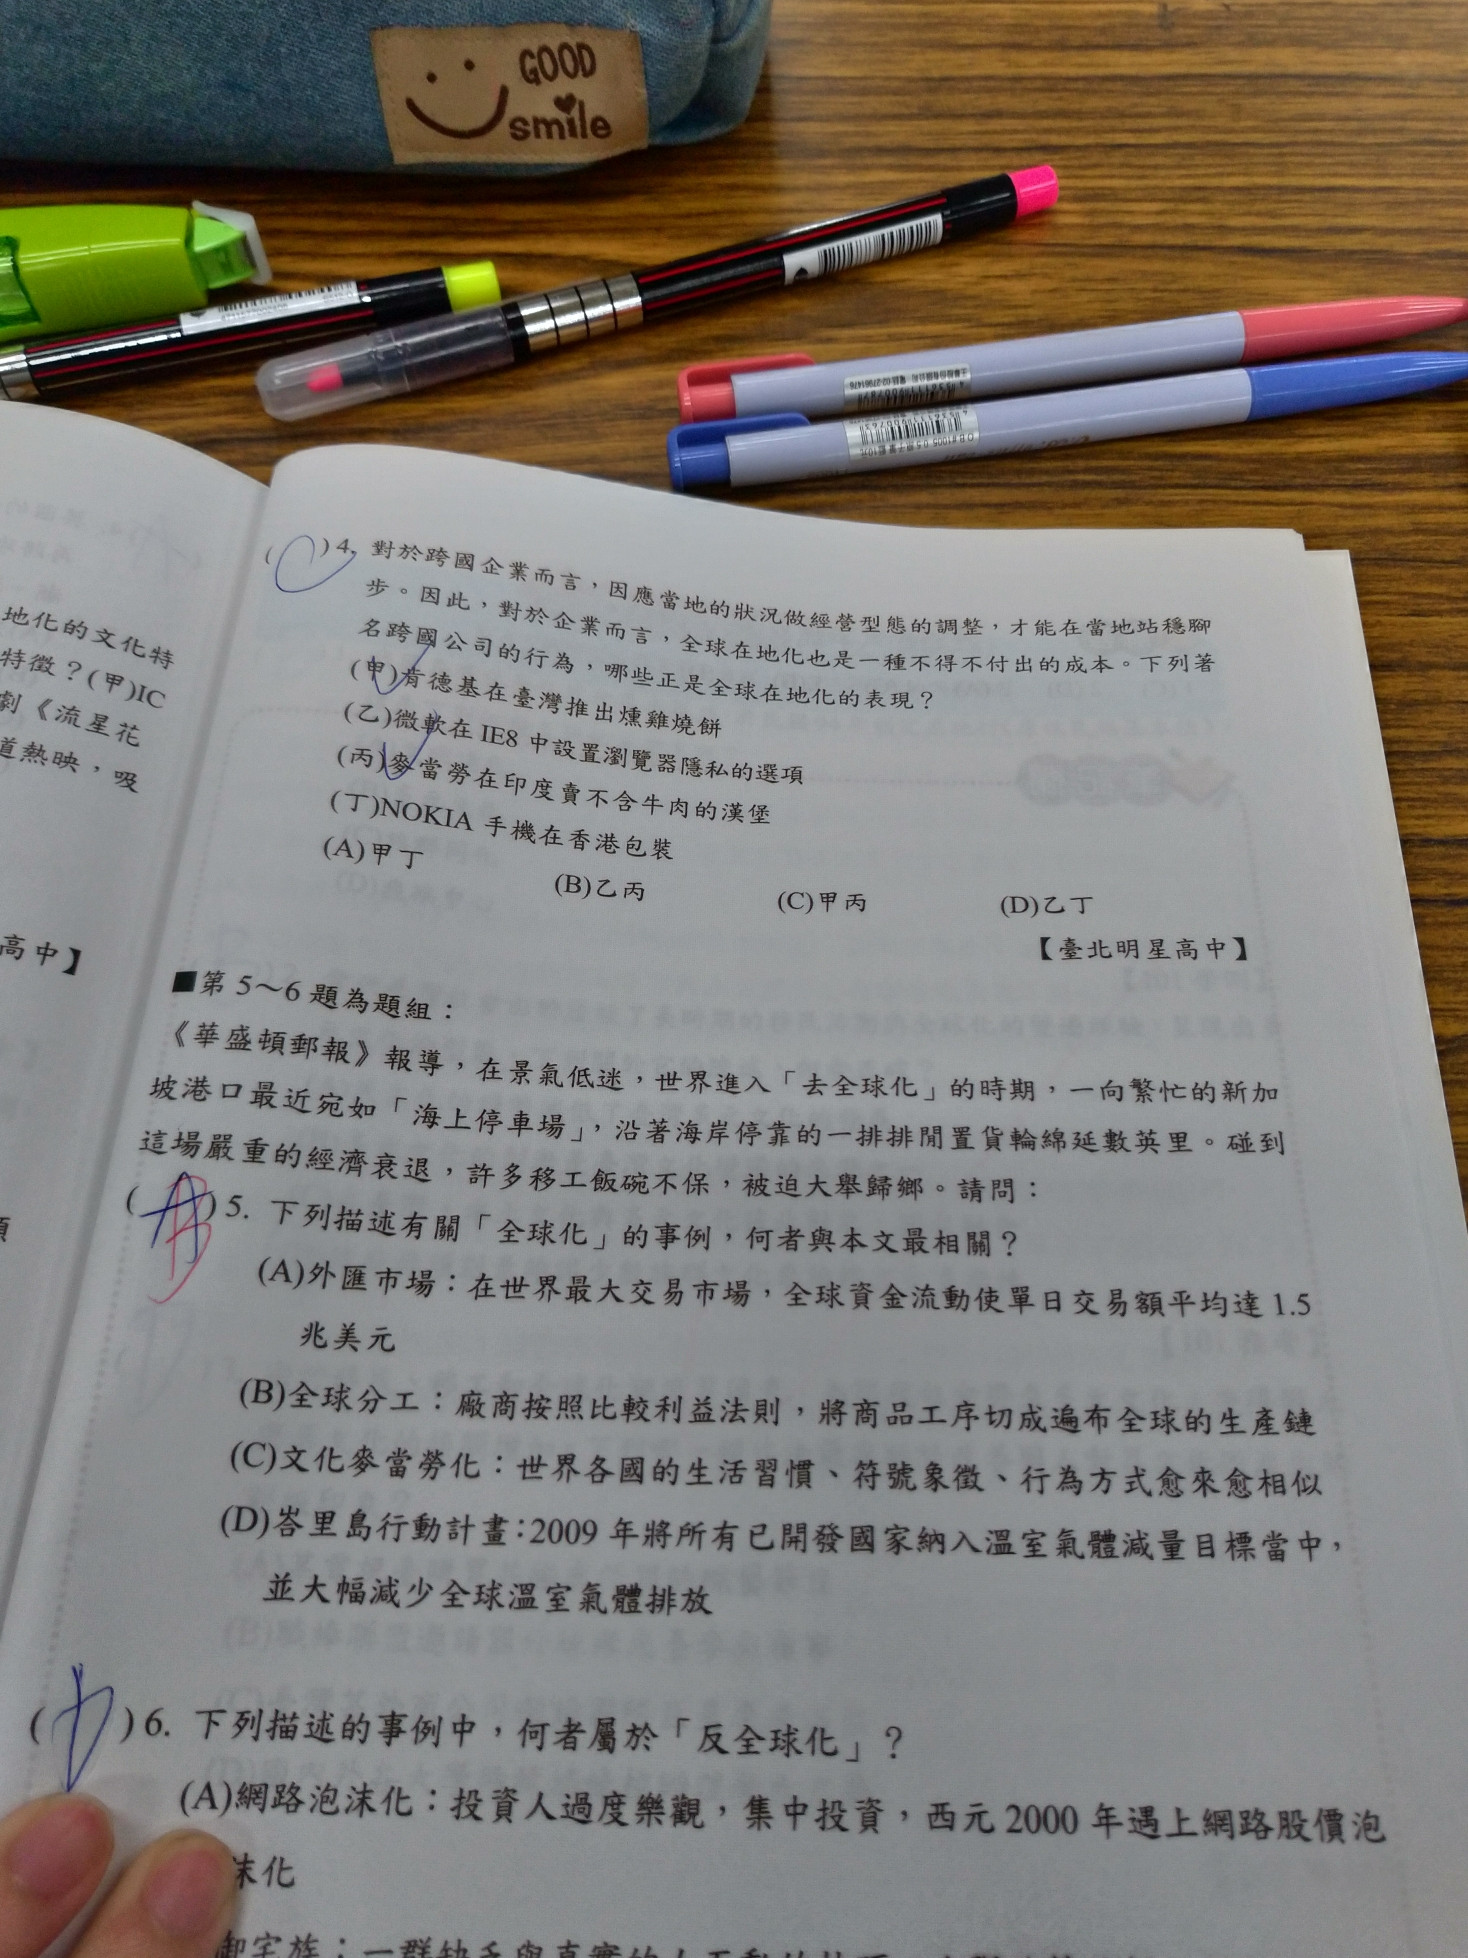 GOOD
smile
地化的文化特
特徵？(甲)IC
劇《流星花
道熱映，吸
高中】
(C)4. 對於跨國企業而言，因應當地的狀況做經營型態的調整，才能在當地站穩腳
步。因此，對於企業而言，全球在地化也是一種不得不付出的成本。下列著
名跨國公司的行為，哪些正是全球在地化的表現？
(甲)肯德基在臺灣推出燻雞燒餅
(乙)微軟在 IE8 中設置瀏覽器隱私的選項
(丙)麥當勞在印度賣不含牛肉的漢堡
(丁)NOKIA 手機在香港包裝
(A)甲丁 (B)乙丙 (C)甲丙 (D)乙丁
【臺北明星高中】
■第 5～6 題為題組：
《華盛頓郵報》報導，在景氣低迷，世界進入「去全球化」的時期，一向繁忙的新加
坡港口最近宛如「海上停車場」，沿著海岸停靠的一排排閒置貨輪綿延數英里。碰到
這場嚴重的經濟衰退，許多移工飯碗不保，被迫大舉歸鄉。請問：
(A B)5. 下列描述有關「全球化」的事例，何者與本文最相關？
(A)外匯市場：在世界最大交易市場，全球資金流動使單日交易額平均達 1.5
兆美元
(B)全球分工：廠商按照比較利益法則，將商品工序切成遍布全球的生產鏈
(C)文化麥當勞化：世界各國的生活習慣、符號象徵、行為方式愈來愈相似
(D)峇里島行動計畫：2009 年將所有已開發國家納入溫室氣體減量目標當中，
並大幅減少全球溫室氣體排放
(D)6. 下列描述的事例中，何者屬於「反全球化」？
(A)網路泡沫化：投資人過度樂觀，集中投資，西元 2000 年遇上網路股價泡
沫化